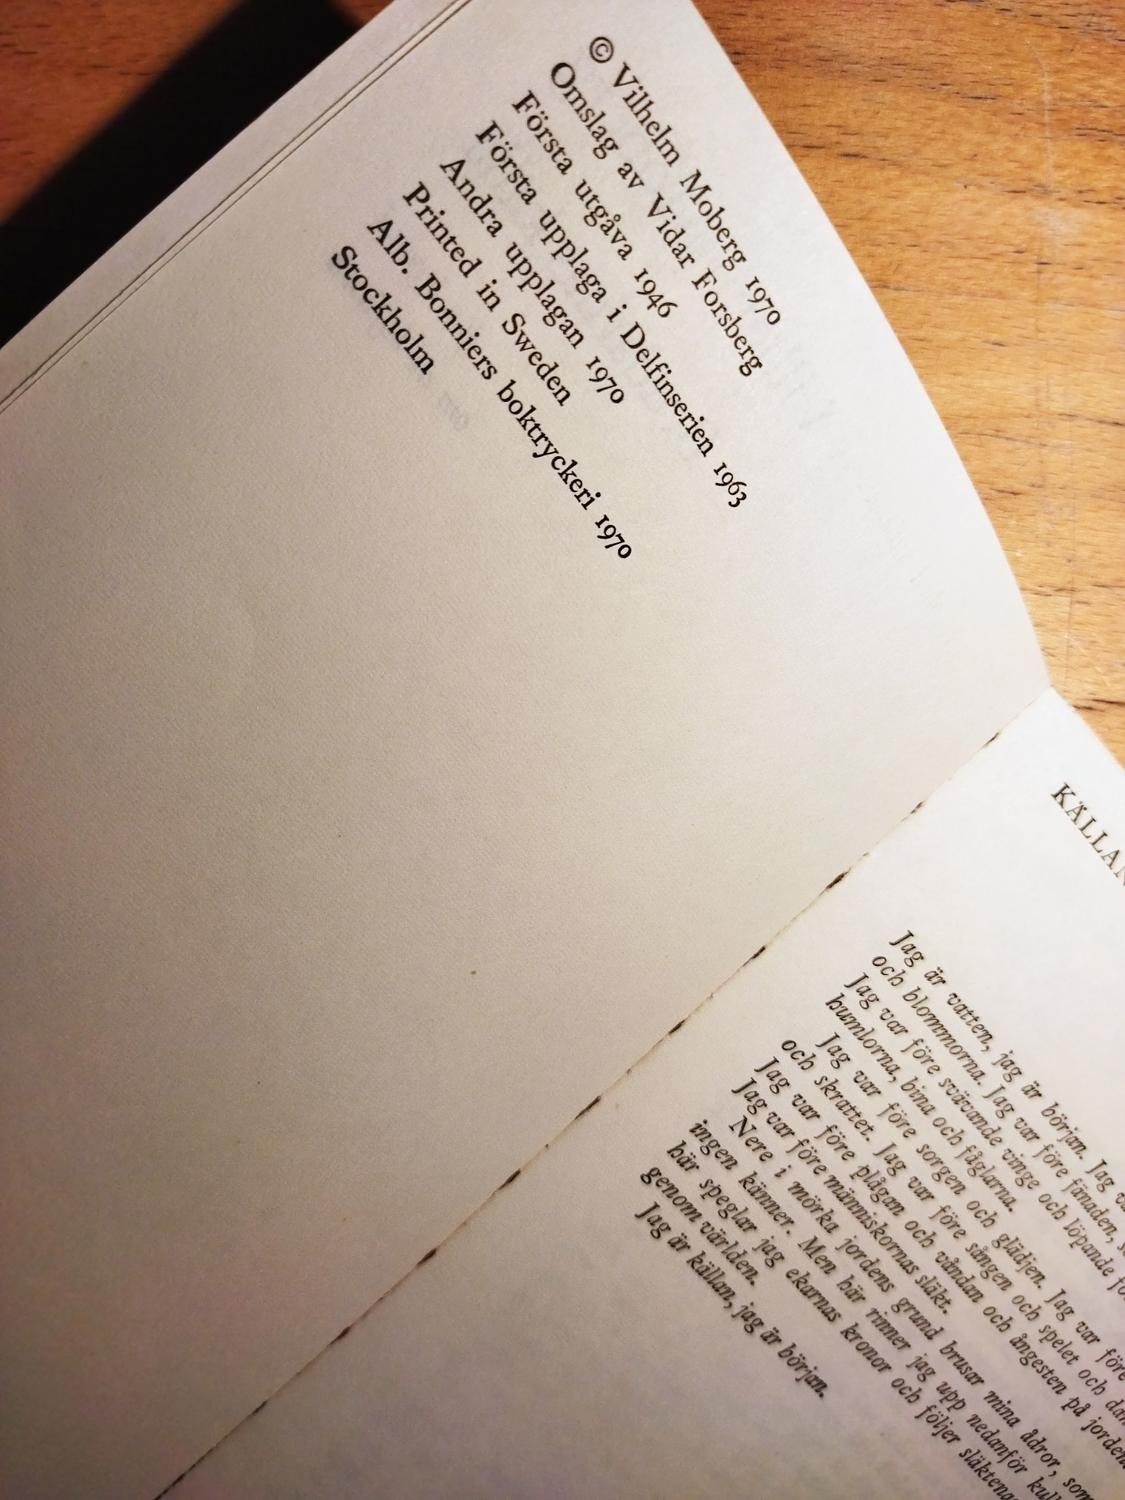 © Vilhelm Moberg 1970
Omslag av Vidar Forsberg
Första utgåva 1946
Första upplaga i Delfinserien 1963
Andra upplagan 1970
Printed in Sweden
Alb. Bonniers boktryckeri 1970
Stockholm
KÄLLAN
Jag är vatten, jag är början. Jag
och blommorna. Jag var före fänaden,
Jag var före svävande vinge och löpande
humlorna, bina och fåglarna.
Jag var före sorgen och glädjen. Jag var före
och skrattet. Jag var före sången och spelet och
Jag var före plågan och våndan och ångesten på
Jag var före människornas släkt.
Nere i mörka jordens grund brusar mina ådror, som
ingen känner. Men här rinner jag upp nedanför
här speglar jag ekarnas kronor och följer
genom världen.
Jag är källan, jag är början.